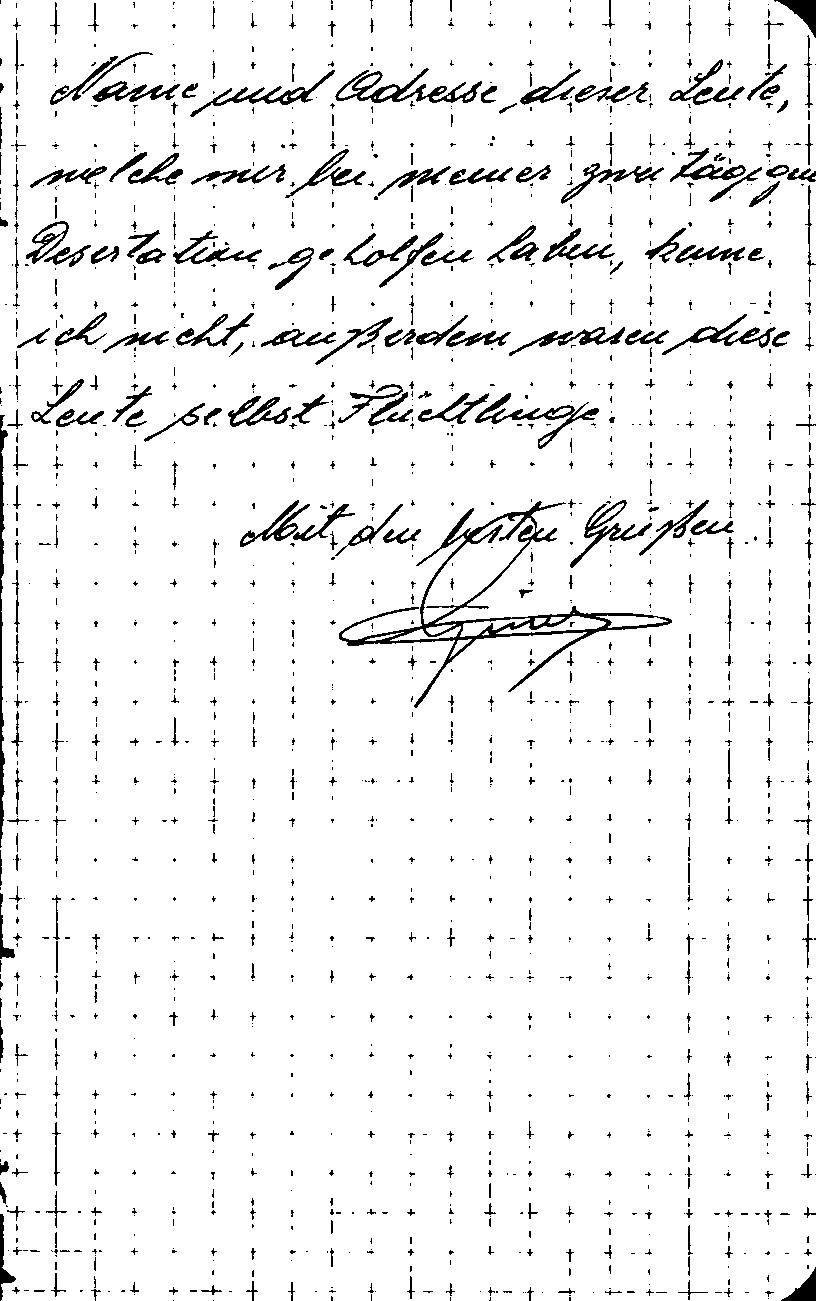 Name und Adresse dieser Leute,
welche mir bei meiner zweitägigen
Desertation geholfen haben, kenne
ich nicht, außerdem waren diese
Leute selbst Flüchtlinge.
Mit den besten Grüßen